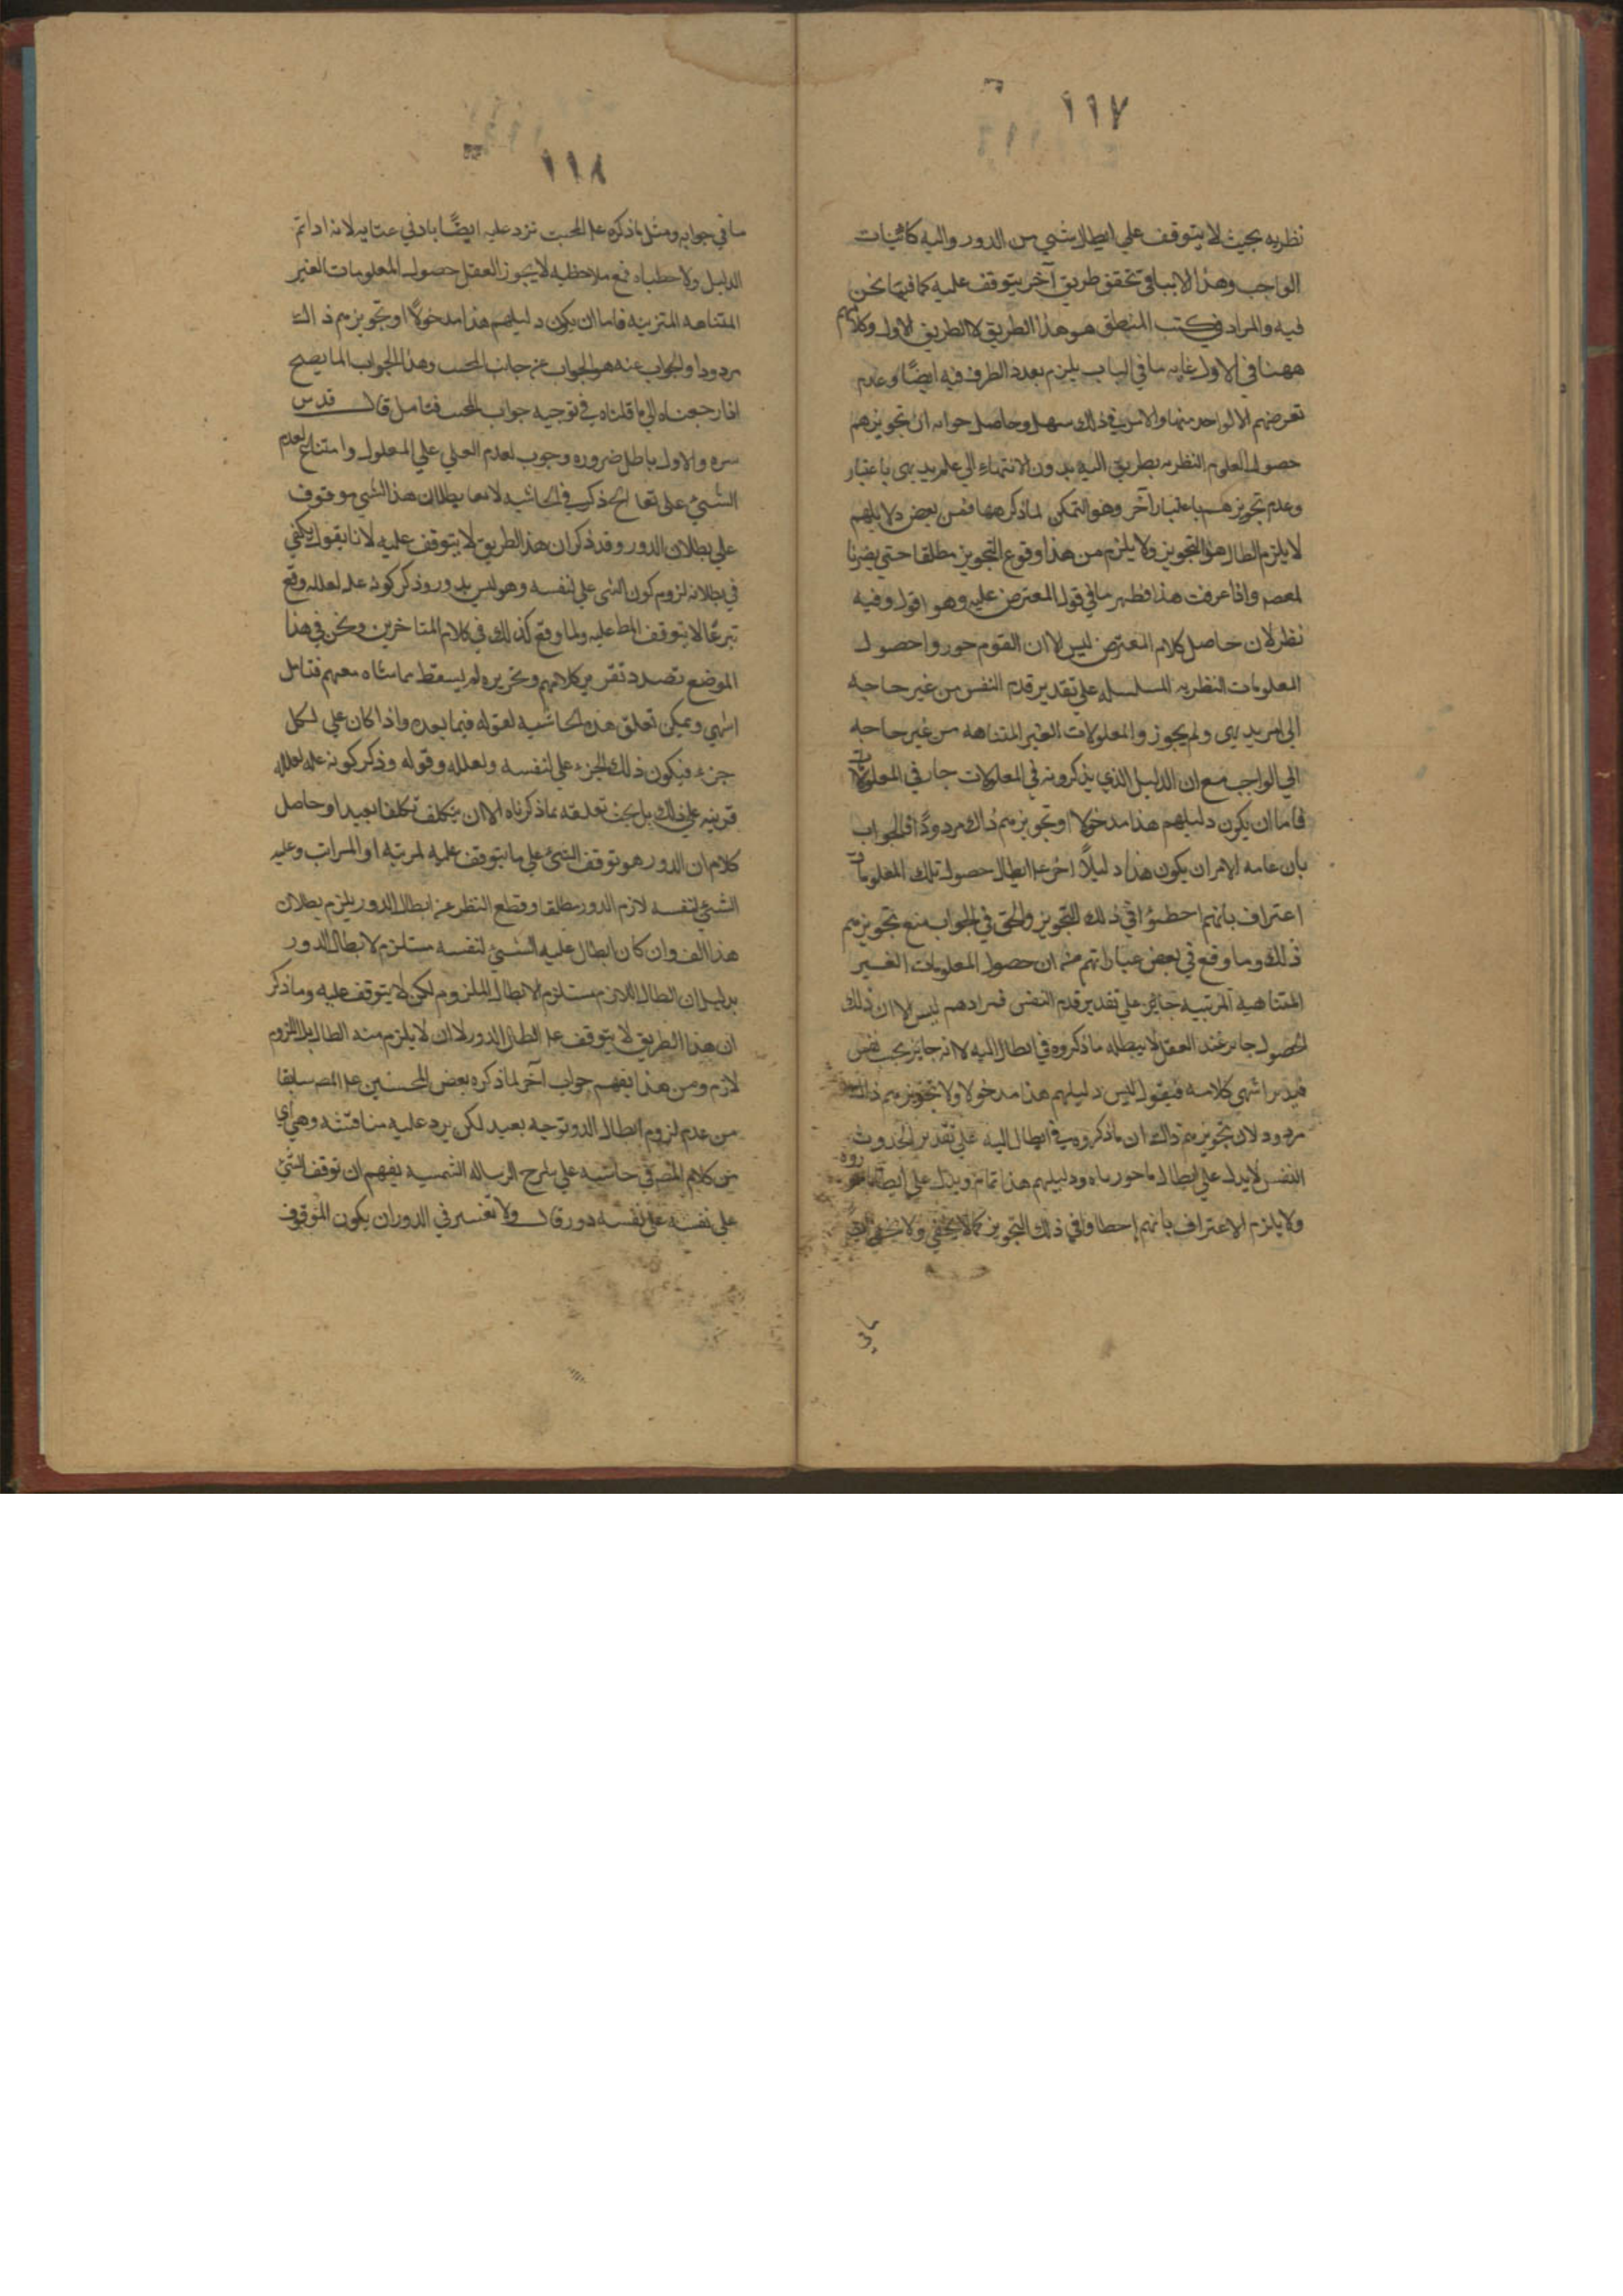 ١١٧
نظريه بحيث لا يتوقف علي ابطال شي من الدور واليه كاثبات
الواجب وهذا لا ينافي تحقق طريق آخر يتوقف عليه كما فيما نحن
فيه والمراد في كتب المنطق هو هذا الطريق لا الطريق الاول وكلامهم
ههنا في الاول غايه ما في الباب يلزم بعدد الطرف فيه ايضًا وعدم
تعرضهم الا لواحد منها والامر في ذلك سهل وحاصل جوابه ان تجويزهم
حصول العلوم النظريه بطريق اليه بدون الانتهاء الي علم بديهي باعتبار
وعدم تجويزهم باعتبار آخر وهو التمكن لما ذكر فهنا فمن بعض دلايلهم
لا يلزم ابطال هذا التجويز ولا يلزم من هذا وقوع التجويز مطلقا حتي يضرنا
لمعصم واذا عرفت هذا فظهر ما في قول المعترض عليه وهو اقول وفيه
نظر لان حاصل كلام المعترض ليس الا ان القوم جوروا حصول
المعلومات النظريه المسلسله علي تقدير قدم النفس من غير حاجه
الي امر بديهي ولم يجوز والمعلولات الغير المتناهه من غير حاجه
الي الواجب مع ان الدليل الذي يذكرونه في المعلولات جار في المعلومات
فاما ان يكون دليلهم هذا مدخولا او تجويزهم ذاك مردودًا فالجواب
بان عامه الامر ان يكون هذا دليلًا اخر علي ابطال حصول تلك المعلومات
اعتراف بانهم احطؤا في ذلك التجويز والحق في الجواب منع تجويزهم
ذلك وما وقع في بعض عباراتهم منه ان حصول المعلومات الغير
المتناهية المرتبيه جايز علي تقدير قدم النفس فمرادهم ليس الا ان ذلك
الحصول جايز عند العقل لا يبطله ما ذكروه في ابطال اليه لا انه جايز بحب نفس
فيدبر انتهي كلامه فيقول ليس دليلهم هذا مدخولا ولا تجويزهم ذاك
مردود لان تجويزهم ذاك ان ما ذكروه في ابطال اليه علي تقدير الحدوث
النفس لا يدل علي ابطال ما جوزوه ودليلهم هذا تمام ويدل علي ابطال
ولا يلزم الاعتراف بانهم احطاوا في ذلك التجويز كما لا يخفي ولا يخفي
ما في
١١٨
ما في جوابه ومثل ما ذكره علي المحبت نزد عليه ايضًا بادني عنايه لانه اداتم
الدليل ولاحظناه فمع ملاحظيه لا يجوز العقل حصول المعلومات الغير
المتناهه المترتبه فاما ان يكون دليلهم هذا مدخولًا او تجويزهم ذاك
مردودا والجواب عنه هو الجواب عن جانب المحب وهذا الجواب انما يصح
اذا رجعناه الي ما قلناه في توجيه جواب المحب فتامل قال قدس
سره والاول باطل ضروره وجوب لعدم العلي علي المعلول وامتناع لعدم
الشيئ علي تعا الخ ذكر في الحاشيه لا معا بطلان هذا الشيي موقوف
علي بطلان الدور وقد ذكر ان هذا الطريق لا يتوقف عليه لانا يقول يكفي
في بطلانه لزوم كون الشي علي لنفسه وهو ليس بدور وذكر كونه عله لعلله وقع
تبرعًا لا يتوقف المط عليه ولما وقع كذلك في كلام المتاخرين ونحن في هذا
الموضع تصدد تقرير كلامهم وتحريره لم يسقط مماشاه معهم فتامل
انتهي ويمكن تعلق هذه الحاشيه لعقوله فيما بعده واذا كان علي لكل
جزء فيكون ذلك الجزء علي لنفسه ولعلله وقوله وذكر كونه عله لعلله
قرينه علي ذلك بل بحث تعلقه بما ذكرناه الا ان يتكلف تكلفا بعيدا وحاصل
كلام ان الدور هو توقف الشيئ علي ما يتوقف عليه لمرتبه او المراتب وعليه
الشيئ لنفسه لازم الدور مطلقا وقطع النظر عن ابطال الدور يلزم بطلان
هذا الف وان كان ابطال عليه الشيئ لنفسه مستلزم لابطال الدور
بدليل ان ابطال اللازم مستلزم لابطال الملزوم لكن لا يتوقف عليه وما ذكر
ان هذا الطريق لا يتوقف علي ابطال الدور لا ان لا يلزم منه ابطال بل اللزوم
لازم ومن هذا يفهم جواب آخر لما ذكره بعض المحشين علي المص سابقا
من عدم لزوم ابطال الدو توجيه بعيد لكن يرد عليه مناقشه وهي أي
من كلام المص في حاشيه علي شرح الرساله الشمسيه يفهم ان توقف الشيئ
علي نفسه علي نفسه دور قال ولا تفسير في الدور ان يكون الموقوف